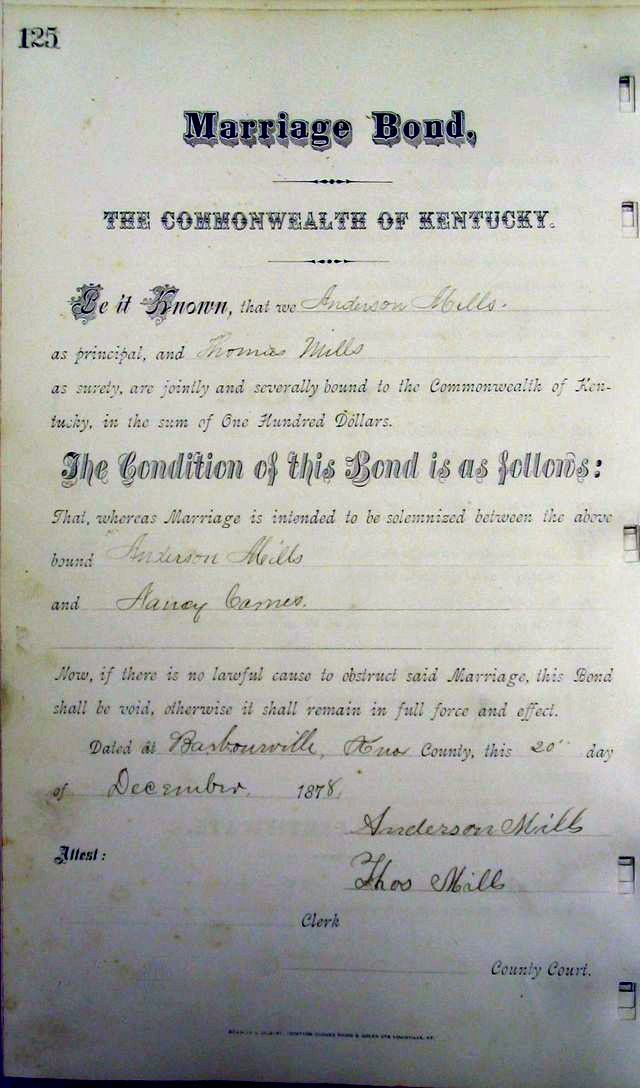 125
Marriage Bond,
THE COMMONWEALTH OF KENTUCKY.
Be it Known, that we Anderson Mills.
as principal, and Thomas Mills
as surety, are jointly and severally bound to the Commonwealth of Ken-
tucky, in the sum of One Hundred Dollars.
The Condition of this Bond is as follows:
That, whereas Marriage is intended to be solemnized between the above
bound Anderson Mills
and Nancy Carnes.
Now, if there is no lawful cause to obstruct said Marriage, this Bond
shall be void, otherwise it shall remain in full force and effect.
Dated at Barbourville, Knox County, this 20" day
of December, 1878,
Anderson Mills
Attest:
Thos Mills
Clerk
County Court.